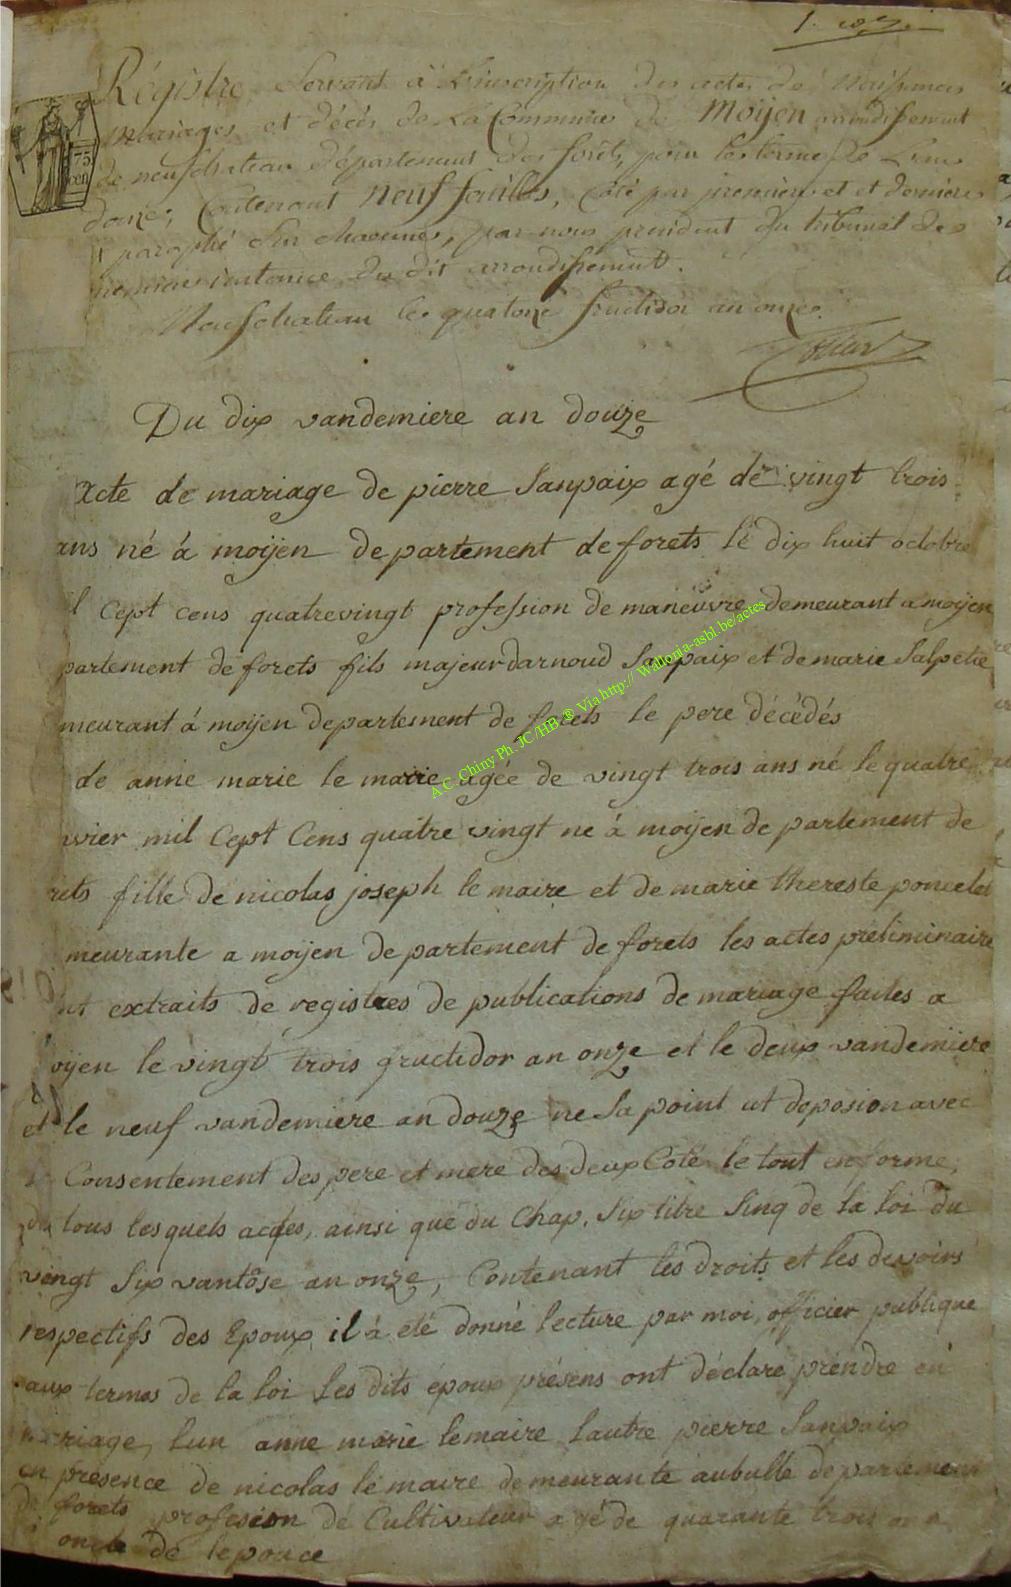 1. 
Régistre Servant à L'inscription des actes de Naissances
mariages et décès de La Commune de Moijen arrondissement
de neufchateau département des forêts, pour les terme de L'an
douze, Contenant neuf failles, Coté par premiere et et derniere
et paraphé Sur chacunes, par nous président du tribunal de
premiere instance du dit arrondissement.
Neufchateau le quatorze fructidor an onze.
75
cen
Du dix vandemiere an douze
acte de mariage de pierre Sanpaix agé de vingt trois
ans né á moijen departement de forets le dix huit octobre
il cept cens quatrevingt profession de maneuvre demeurant a moijen
partement de forets fils majeur darnoud Sanpaix et de marie Salpetie
meurant á moijen departement de forets le pere décédés
de anne marie le maire agée de vingt trois ans né le quatre
vier mil Cept Cens quatre vingt ne á moijen de partement de
rets fille de nicolas joseph le maire et de marie thereste poncelet
meurante a moijen departement de forets les actes preliminaire
nt extraits de registres de publications de mariage faites a
oijen le vingt trois fructidor an onze et le deux vandemiere
et le neuf vandemiere an douze ne Sa point ut deposion avec
Consentement des pere et mere des deux Coté le tout en forme,
de tous les quels actes, ainsi que du Chap. Six titre Sinq de la loi du
vingt Six vantôse an onze, Contenant les droits et les devoirs
respectifs des Epoux, il á eté donné lecture par moi, officier publique
aux termes de la loi Les dits époux présens ont déclare prendre en
mariage, lun anne marie lemaire lautre pierre Sanpaix
en présence de nicolas le maire demeurante aubulle departement
de forets profesion de Cultivateur agé de quarante trois ans
oncle de lepouce
A.C. Chiny Ph. JC/HB ® Via http:// Wallonia-asbl.be/actes